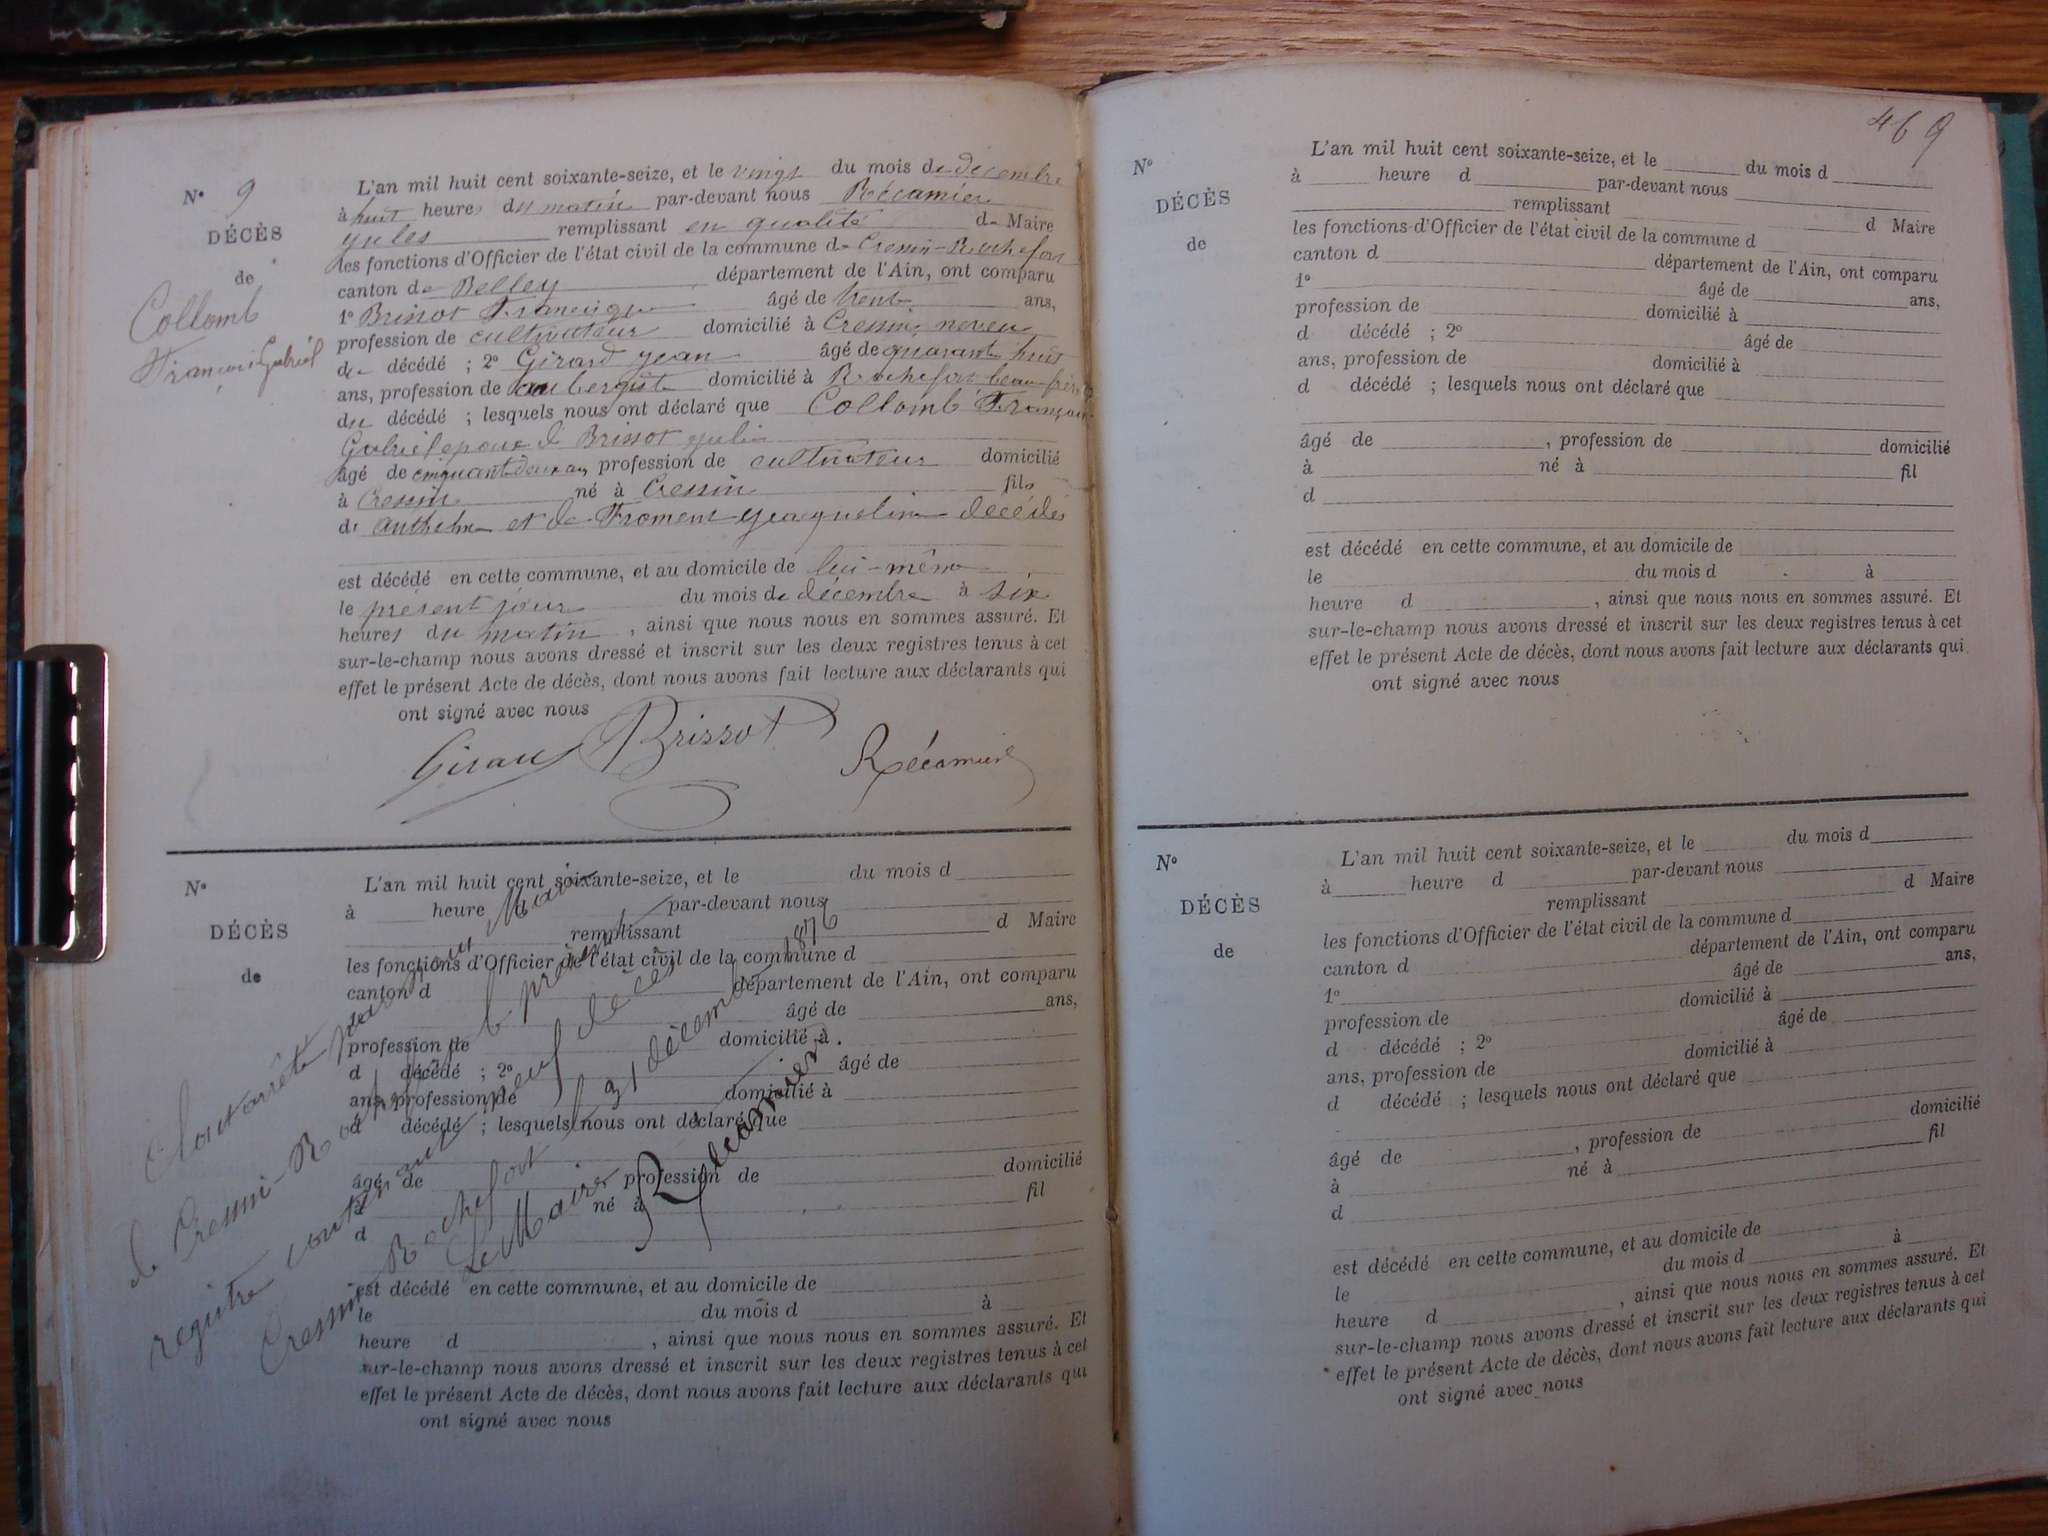 N° 9
DÉCÈS
de
Collomb
François Gabriel
L'an mil huit cent soixante-seize, et le vingt du mois de décembre
à huit heures du matin par-devant nous Récamier
Jules remplissant en qualité de Maire
les fonctions d'Officier de l'état civil de la commune de Cressin-Rochefort
canton de Belley département de l'Ain, ont comparu
1° Brissot Francisque âgé de trente ans,
profession de cultivateur domicilié à Cressin, neveu
du décédé ; 2° Girard Jean âgé de quarante huit
ans, profession de aubergiste domicilié à Rochefort beau-frère
du décédé ; lesquels nous ont déclaré que Collomb François
Gabriel époux de Brissot Julie
âgé de cinquante deux ans, profession de cultivateur domicilié
à Cressin né à Cressin fils
de Anthelme et de Froment Jacqueline décédés
est décédé en cette commune, et au domicile de lui-même
le présent jour du mois de décembre à six
heures du matin, ainsi que nous nous en sommes assuré. Et
sur-le-champ nous avons dressé et inscrit sur les deux registres tenus à cet
effet le présent Acte de décès, dont nous avons fait lecture aux déclarants qui
ont signé avec nous
Girard Brissot Récamier
N°
DÉCÈS
de
L'an mil huit cent soixante-seize, et le du mois d
à heure par-devant nous
remplissant d Maire
les fonctions d'Officier de l'état civil de la commune d
canton d département de l'Ain, ont comparu
âgé de ans,
profession de domicilié à
d décédé ; 2° âgé de
ans, profession de domicilié à
d décédé ; lesquels nous ont déclaré que
âgé de profession de domicilié
à né à fil
d
est décédé en cette commune, et au domicile de
le du mois d à
heure d , ainsi que nous nous en sommes assuré. Et
sur-le-champ nous avons dressé et inscrit sur les deux registres tenus à cet
effet le présent Acte de décès, dont nous avons fait lecture aux déclarants qui
ont signé avec nous
Clos et arrêté par nous Maire
de Cressin-Rochefort le présent
registre contenant neuf décès
Cressin Rochefort le 31 décembre 1876
Le Maire
Récamier
469
N°
DÉCÈS
de
L'an mil huit cent soixante-seize, et le du mois d
à heure d par-devant nous
remplissant d Maire
les fonctions d'Officier de l'état civil de la commune d
canton d département de l'Ain, ont comparu
1° âgé de ans,
profession de domicilié à
d décédé ; 2° âgé de
ans, profession de domicilié à
d décédé ; lesquels nous ont déclaré que
âgé de , profession de domicilié
à né à fil
d
est décédé en cette commune, et au domicile de
le du mois d à
heure d , ainsi que nous nous en sommes assuré. Et
sur-le-champ nous avons dressé et inscrit sur les deux registres tenus à cet
effet le présent Acte de décès, dont nous avons fait lecture aux déclarants qui
ont signé avec nous
N°
DÉCÈS
de
L'an mil huit cent soixante-seize, et le du mois d
à heure d par-devant nous
remplissant d Maire
les fonctions d'Officier de l'état civil de la commune d
canton d département de l'Ain, ont comparu
1° âgé de ans,
profession de domicilié à
d décédé ; 2° âgé de
ans, profession de domicilié à
d décédé ; lesquels nous ont déclaré que
âgé de , profession de domicilié
à né à fil
d
est décédé en cette commune, et au domicile de
le du mois d à
heure d , ainsi que nous nous en sommes assuré. Et
sur-le-champ nous avons dressé et inscrit sur les deux registres tenus à cet
effet le présent Acte de décès, dont nous avons fait lecture aux déclarants qui
ont signé avec nous